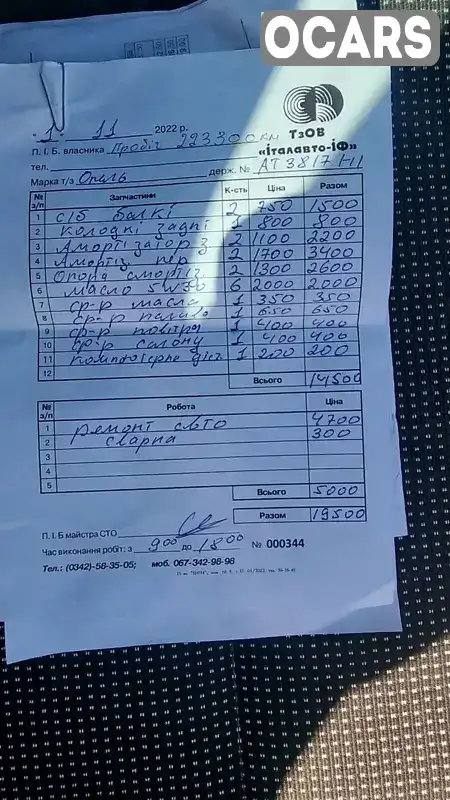 OCARS
1 11 2022 р.
П. І. Б. власника Пробіг 223300 км
ТзОВ
«італавто-ІФ»
тел. держ. №
Марка т/з Опель
№ з/п Запчастини К-сть Ціна Разом
1 с/б балкі 2 750 1500
2 колодкі задні 1 800 800
3 Амортізатор з 2 1100 2200
4 Амортіз. пер 2 1700 3400
5 Опора амортіз. 2 1300 2600
6 масло 5W30 6 2000 2000
7 ф-р масла 1 350 350
8 ф-р палива 1 650 650
9 ф-р повітря 1 400 400
10 ф-р салону 1 400 400
11 1 200 200
12
Всього 14500
№ з/п Робота Ціна
1 ремонт авто 4700
2 сварка 300
3
4
5
Всього 5000
Разом 19500
П. І. Б майстра СТО
Час виконання робіт: з 9 00 до 18 00 № 000344
Тел.: (0342)-58-35-05; моб. 067-342-98-98